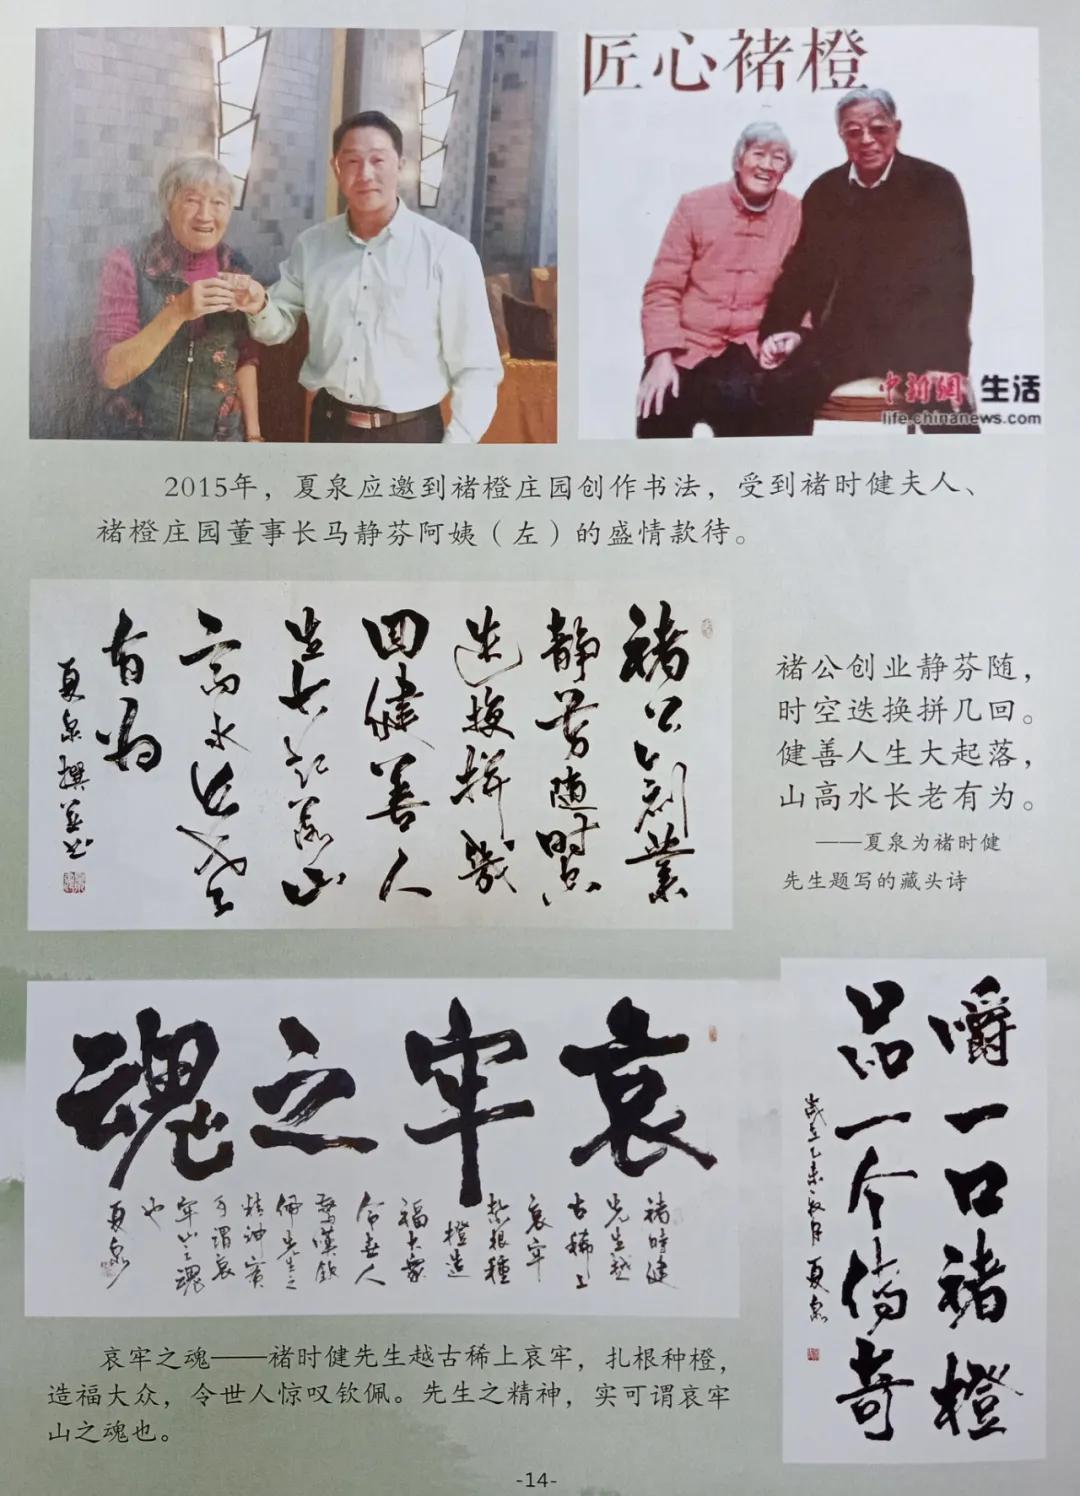 匠心褚橙
中新網 生活
life.chinanews.com
2015年，夏泉应邀到褚橙庄园创作书法，受到褚时健夫人、
褚橙庄园董事长马静芬阿姨（左）的盛情款待。
褚公创業
静芬随时空
迭换拼幾
回健善人
生大起落山
高水长老
有为
夏泉撰并书
褚公创业静芬随，
时空迭换拼几回。
健善人生大起落，
山高水长老有为。
——夏泉为褚时健
先生题写的藏头诗
哀牢之魂
褚时健
先生越
古稀上
哀牢
扎根種
橙造
福大眾
令世人
驚嘆钦
佩先生之
精神實
可謂哀
牢山之魂
也
夏泉
嚼一口褚橙
品一个传奇
歲在乙未秋月 夏泉
哀牢之魂——褚时健先生越古稀上哀牢，扎根种橙，
造福大众，令世人惊叹钦佩。先生之精神，实可谓哀牢
山之魂也。
-14-